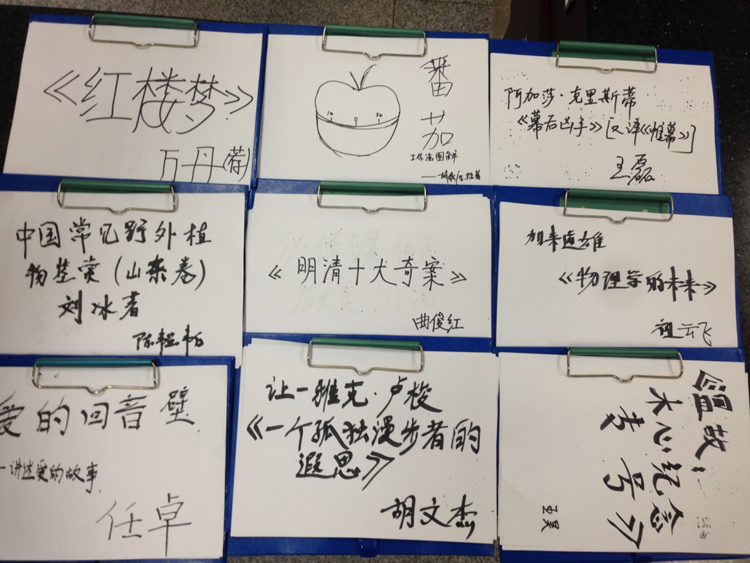 《红楼梦》
番茄
工作法图解
阿加莎·克里斯蒂
《幕后凶手》[又译《帷幕》]
王磊
中国常见野外植
物鉴赏(山东卷)
刘冰著
《明清十大奇案》
曲俊红
加来道雄
《物理学的未来》
祖云飞
爱的回音壁
—讲述爱的故事
任卓
让-雅克·卢梭
《一个孤独漫步者的
遐思》
胡文杰
《温故:
木心纪念
专号》
王昊